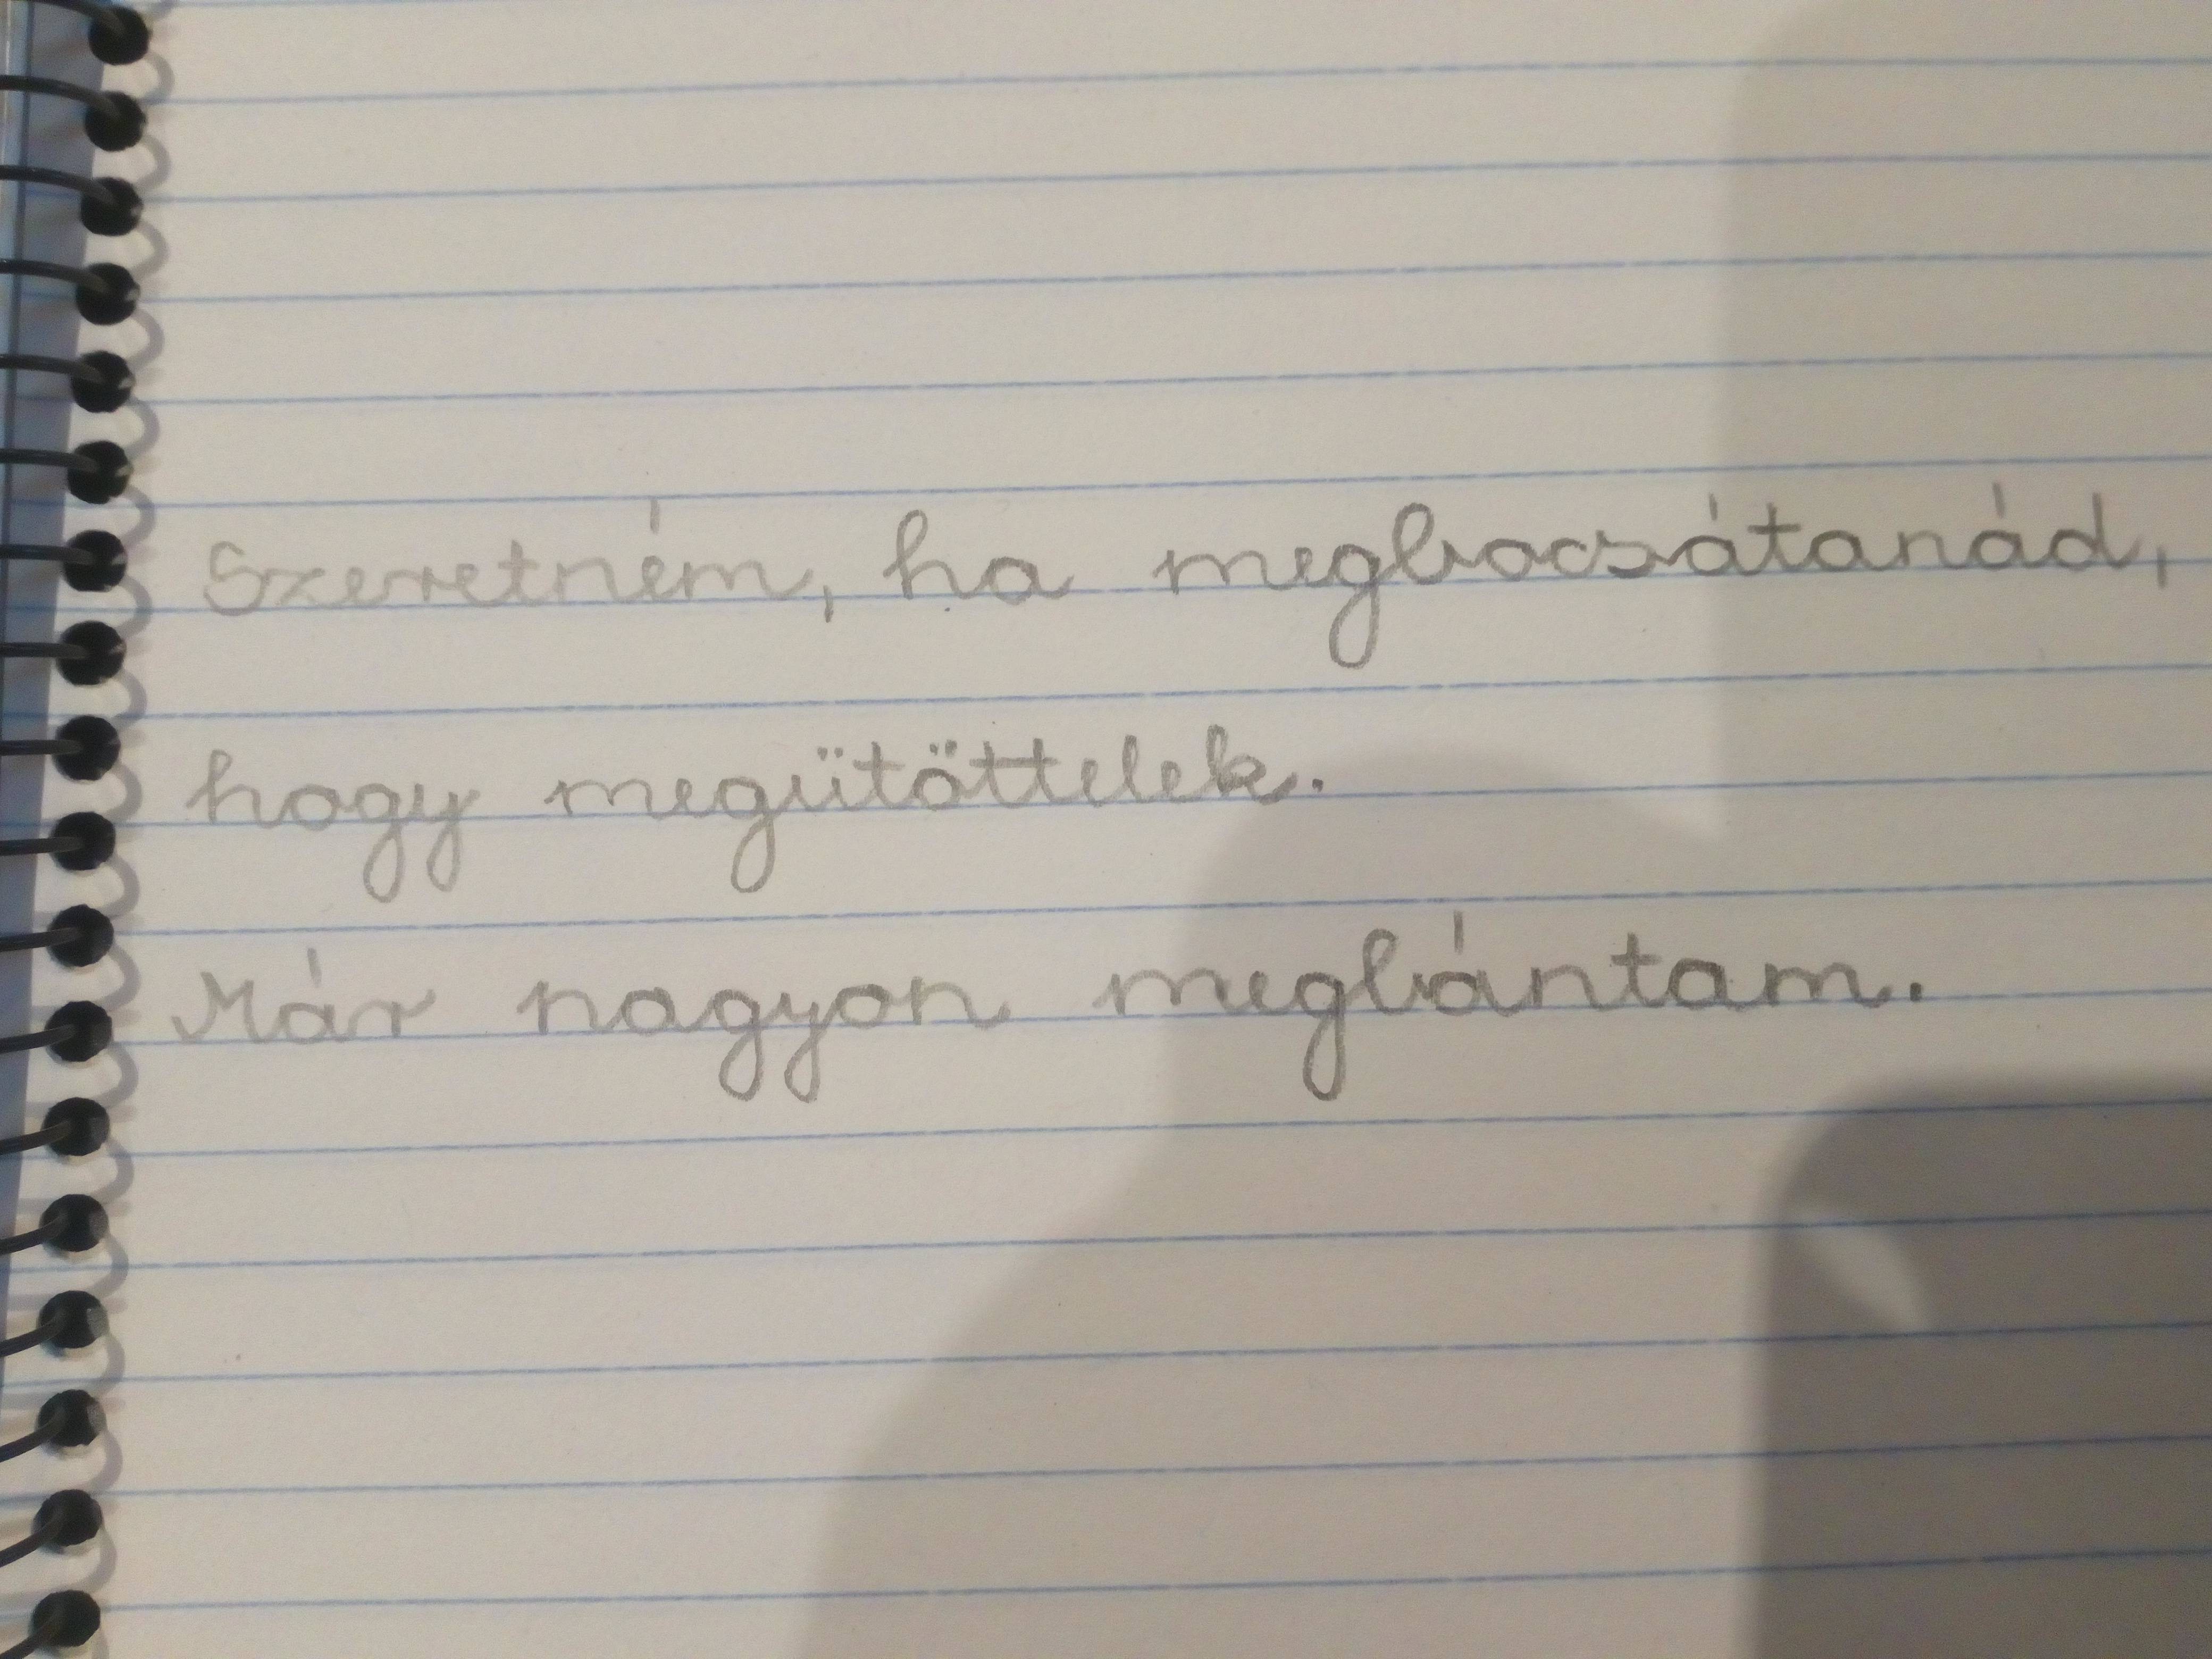 Szeretném, ha megbocsátanád,
hogy megütöttelek.
Már nagyon megbántam.